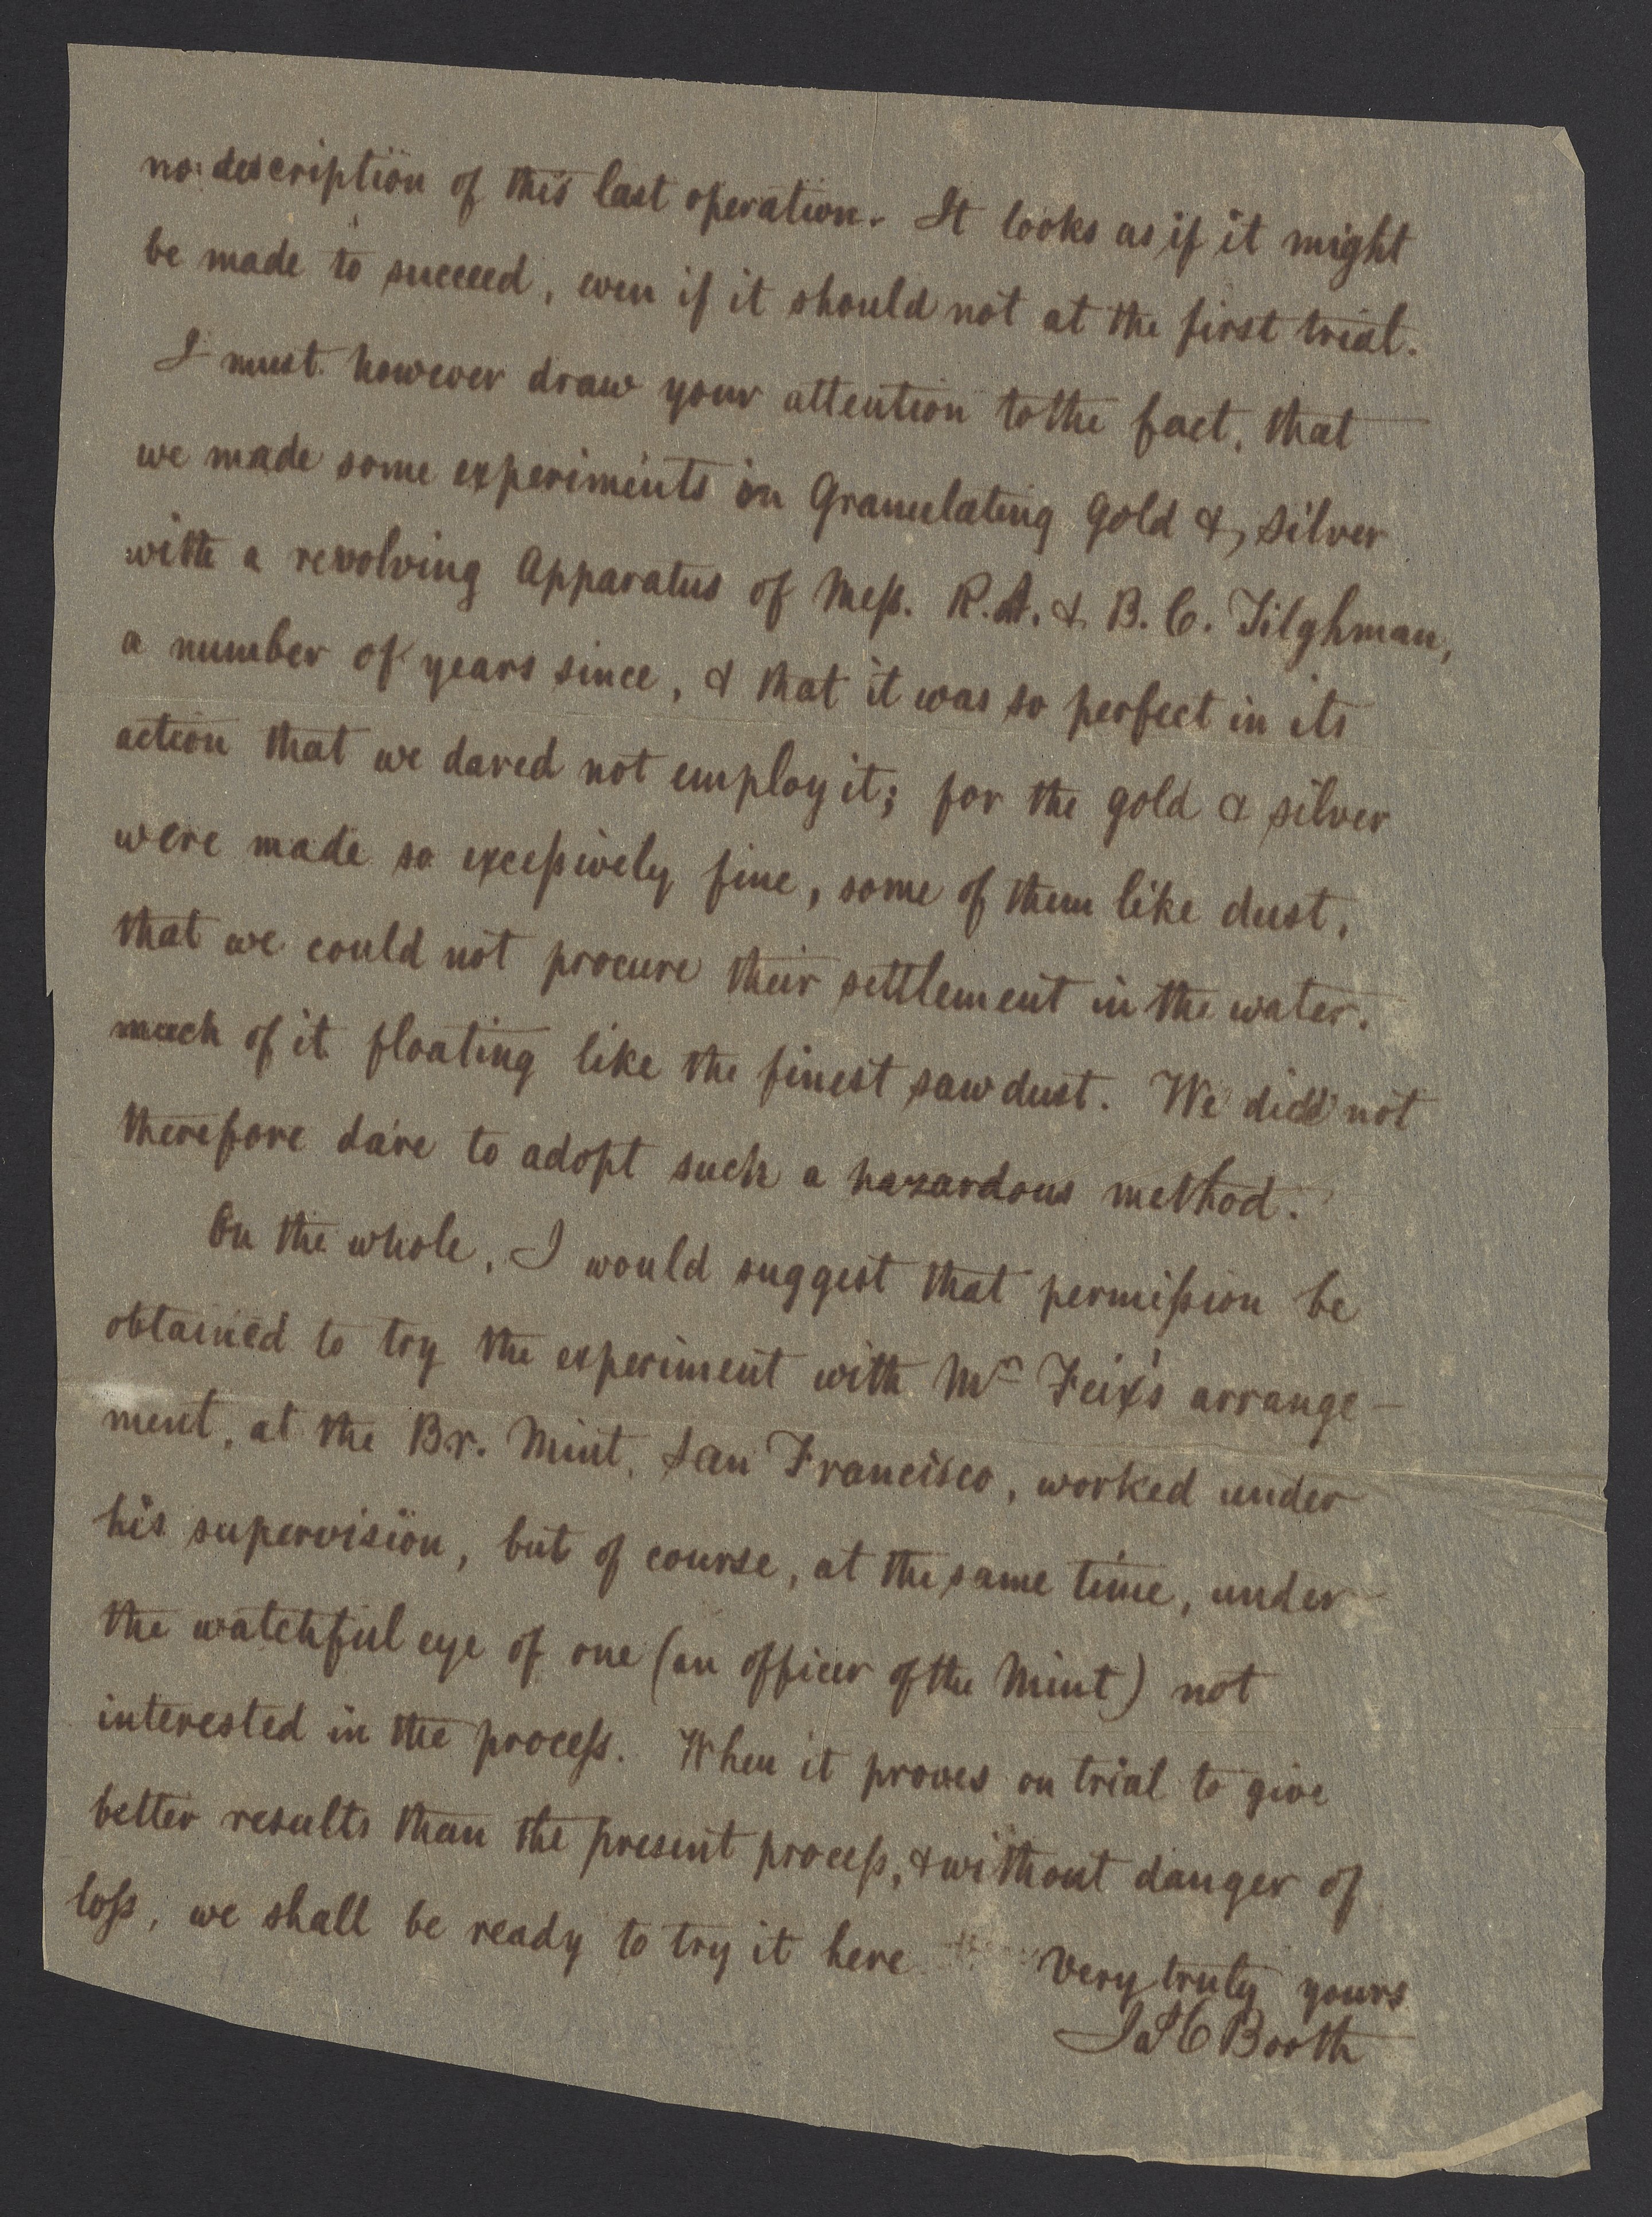 no description of this last operation. It looks as if it might
be made to succeed, even if it should not at the first trial.
I must however draw your attention to the fact, that
we made some experiments in Granulating Gold & Silver
with a revolving Apparatus of Mess. R. A. & B. C. Tilghman,
a number of years since, & that it was so perfect in its
action that we dared not employ it; for the gold & silver
were made so excessively fine, some of them like dust,
that we could not procure their settlement in the water.
much of it floating like the finest sawdust. We did not
therefore dare to adopt such a hazardous method.
On the whole, I would suggest that permission be
obtained to try the experiment with Mr Feix's arrange-
ment, at the Br. Mint, San Francisco, worked under
his supervision, but of course, at the same time, under
the watchful eye of one (an officer of the Mint) not
interested in the process. When it proves on trial to give
better results than the present process, & without danger of
loss, we shall be ready to try it here
Very truly yours
Jas C Booth